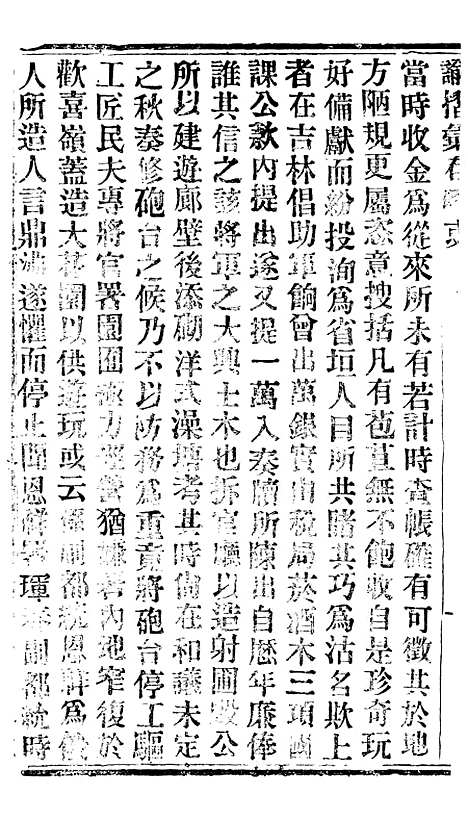 論摺彙存
當時收金爲從來所未有若計時查帳確有可徵其於地
方陋規更屬恣意搜括凡有苞苴無不飽收自是珍奇玩
好備獻而紛投洵爲省垣人目所共睹其巧爲沽名欺上
者在吉林倡助軍餉曾出萬鍰實由稅局菸酒木三項國
課公款內提出遂又提一萬入奏牘所陳出自歷年廉俸
誰其信之該將軍之大興土木也拆官廳以造射圃毀公
所以建遊廊壁後添砌洋式澡塘考其時尙在和議未定
之秋奏修砲台之候乃不以防務爲重竟將砲台停工驅
工匠民夫專將官署園囿極力經營猶嫌署內地窄復於
歡喜嶺蓋造大花園以供遊玩或云係副都統恩祥爲
人所造人言鼎沸遂懼而停止聞恩祥署琿春副都統時